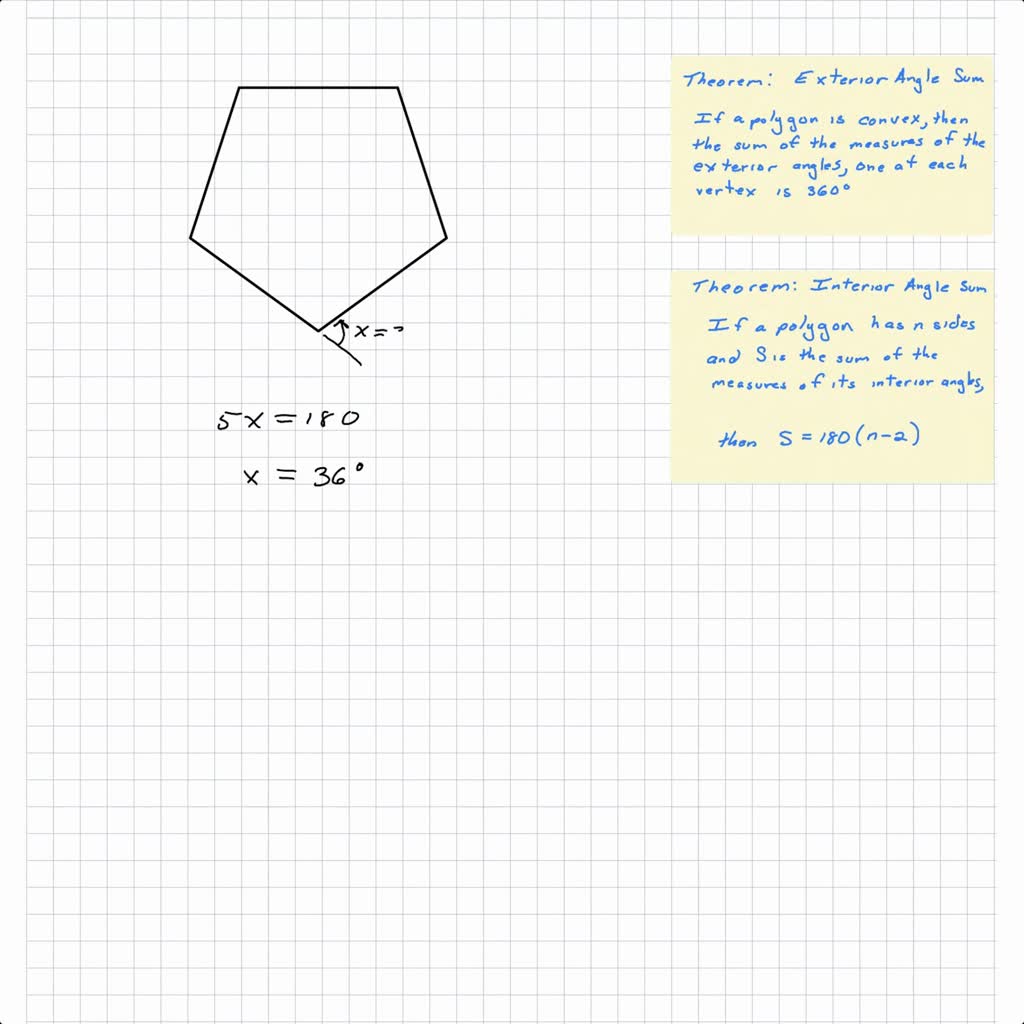 x = ?
5x = 180
x = 36°
Theorem: Exterior Angle Sum
If a polygon is convex, then
the sum of the measures of the
exterior angles, one at each
vertex is 360°
Theorem: Interior Angle Sum
If a polygon has n sides
and S is the sum of the
measures of its interior angles,
then S = 180(n-2)